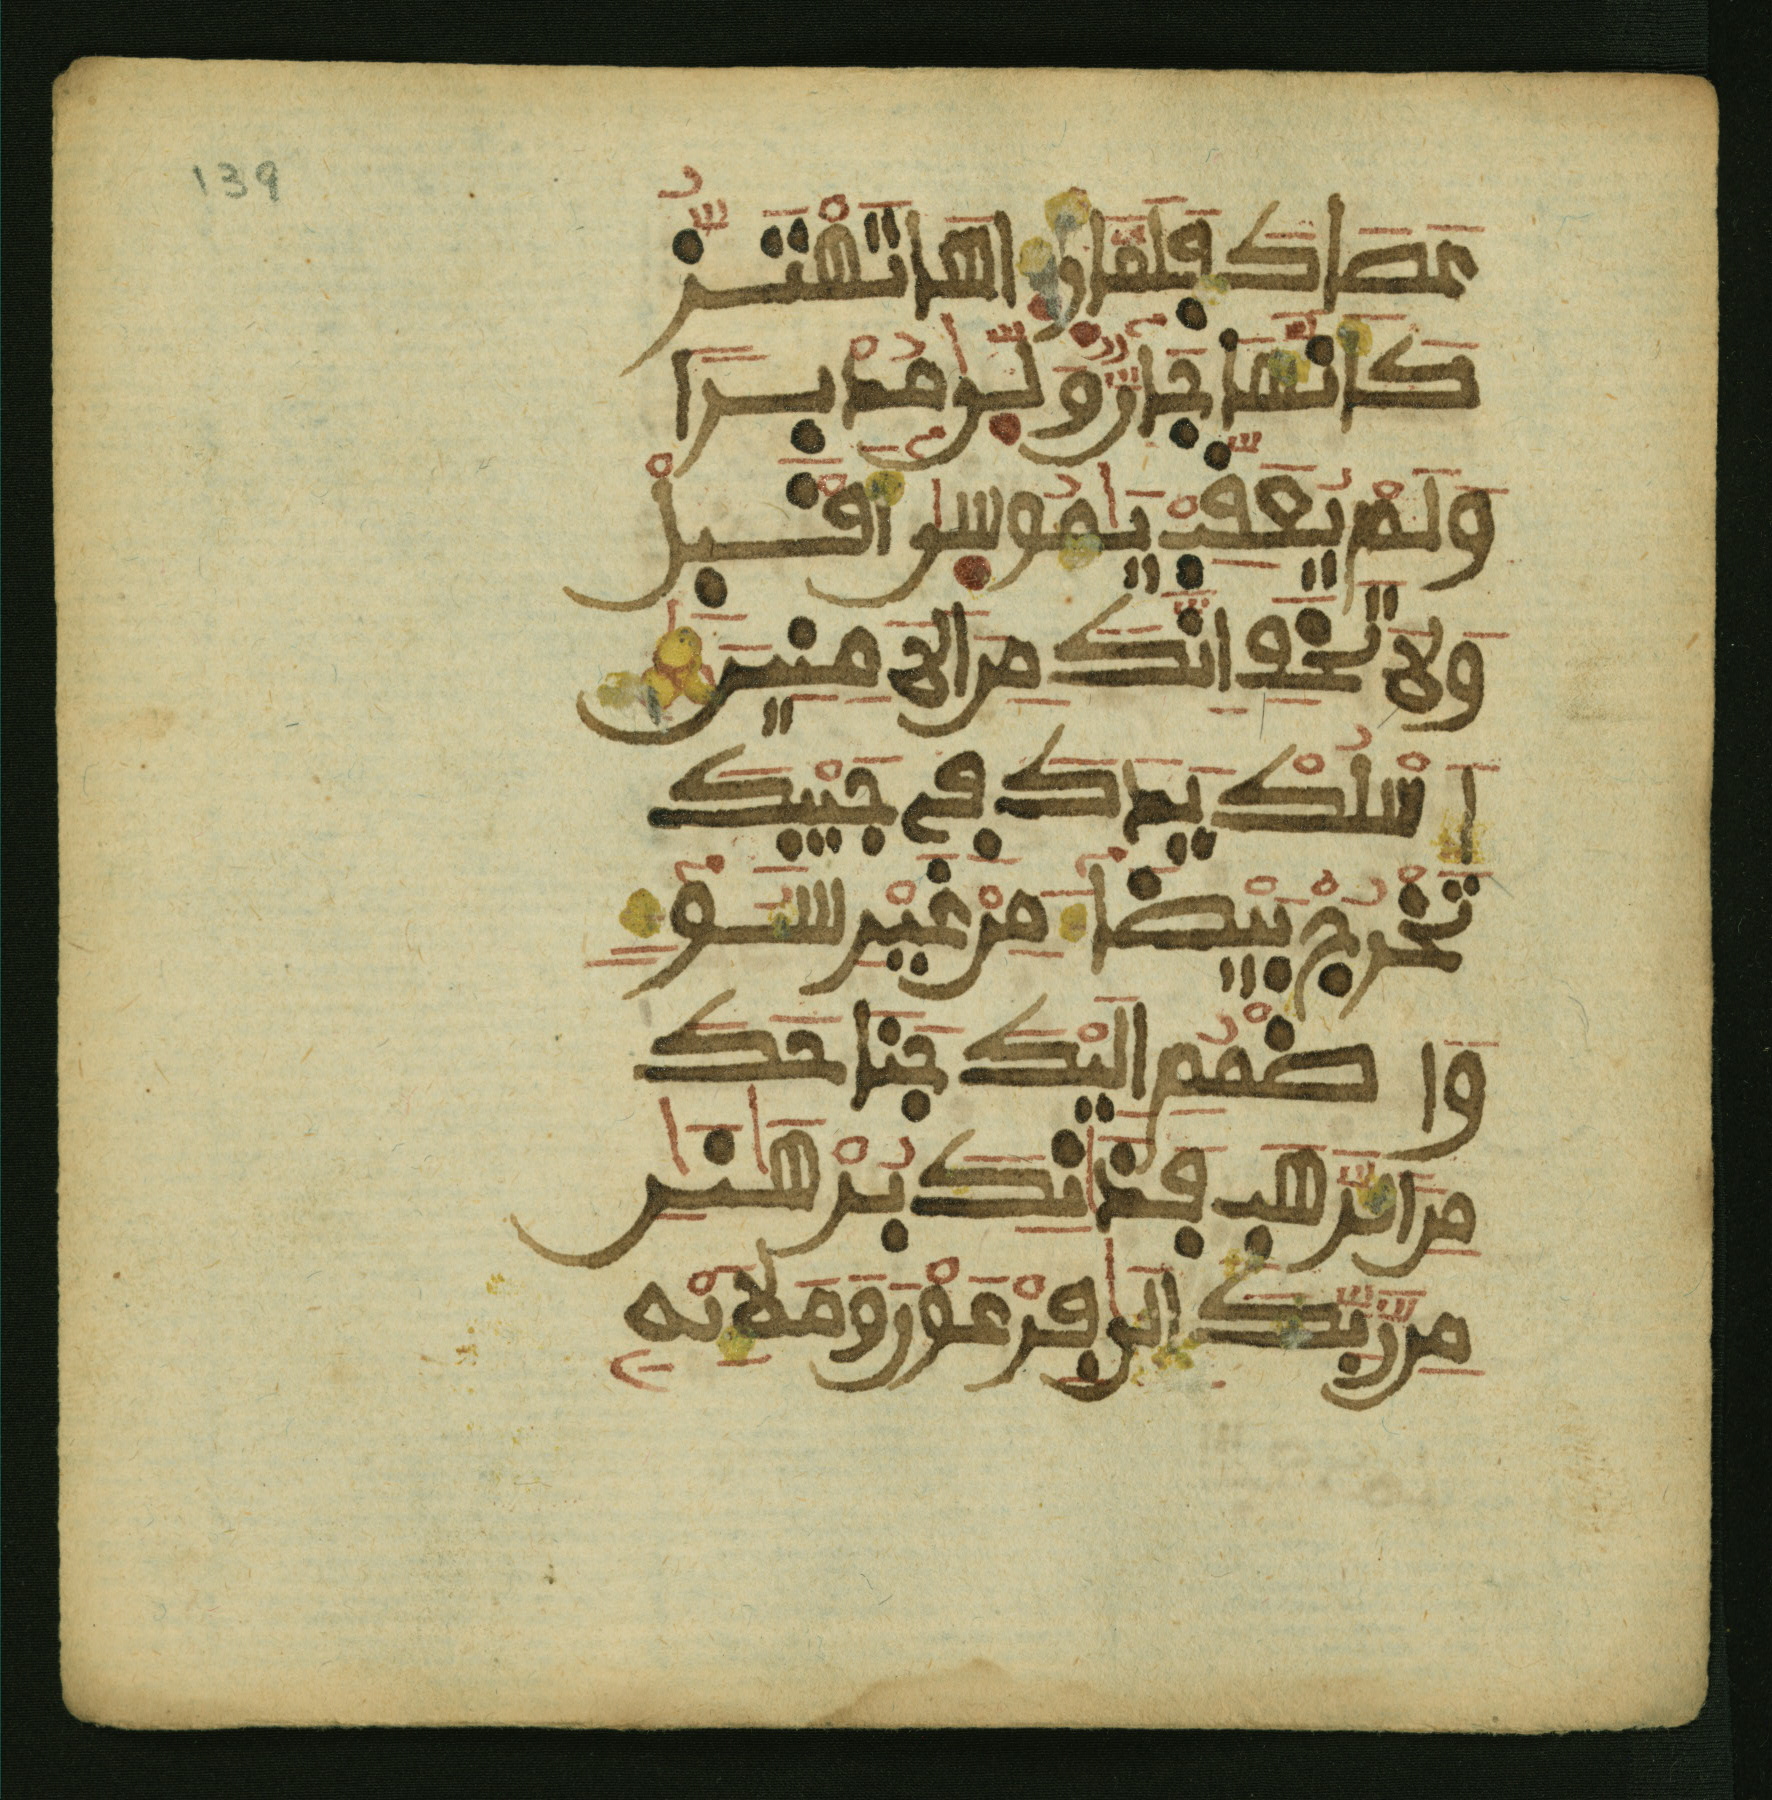 139
عَصَاكَ فَلَمَّا رءاهَا تَهْتَزُّ
كَأَنَّهَا جَانٌّ وَلّٰى مُدْبِرًا
وَلَمْ يُعَقِّبْ يَامُوسٰى أَقْبِلْ
وَلَا تَخَفْ إِنَّكَ مِنَ الْأٰمِنِينَ
اسْلُكْ يَدَكَ فِي جَيْبِكَ
تَخْرُجْ بَيْضَاءَ مِنْ غَيْرِ سُوءٍ
وَاضْمُمْ إِلَيْكَ جَنَاحَكَ
مِنَ الرَّهَبِ فَذَانِكَ بُرْهَانَانِ
مِن رَّبِّكَ إِلٰى فِرْعَوْنَ وَمَلَإِيْهِ